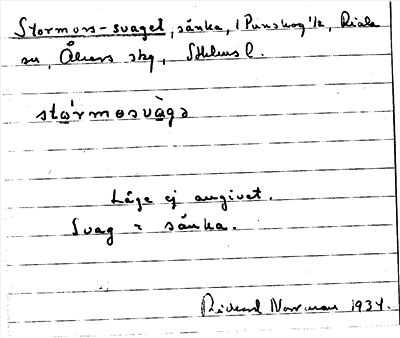 Stormurs-svaget, sänka, i Punskog 1/2, Riala
sn, Åkers skg, Sthlms l.
sta'rmosvàgə
Läge ej angivet.
Svag = sänka.
Rickard Norrman 1934.